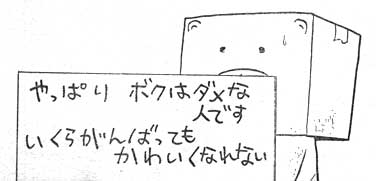 やっぱり ボクはダメな
人です
いくらがんばっても
かわいくなれない